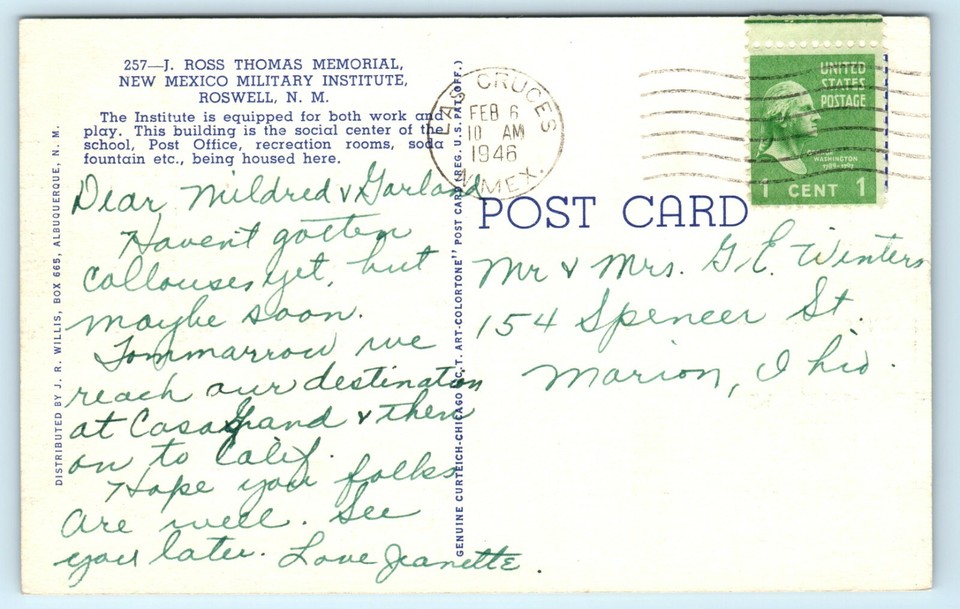 257—J. ROSS THOMAS MEMORIAL,
NEW MEXICO MILITARY INSTITUTE,
ROSWELL, N. M.
The Institute is equipped for both work and
play. This building is the social center of the
school, Post Office, recreation rooms, soda
fountain etc., being housed here.
Dear Mildred & Garland
Haven't gotten
callouses yet, but
maybe soon.
Tommarrow we
reach our destination
at Casa Grand & then
on to Calif.
Hope you folks
are well. See
you later. Love Jeanette.
DISTRIBUTED BY J. R. WILLIS, BOX 665, ALBUQUERQUE, N. M.
GENUINE CURTEICH-CHICAGO "C.T. ART-COLORTONE" POST CARD (REG. U.S. PAT. OFF.)
LAS CRUCES
FEB 6
10 AM
1946
N. MEX.
UNITED
STATES
POSTAGE
GEORGE
WASHINGTON
1789-1797
1 CENT 1
POST CARD
Mr & Mrs. G. E. Winters
154 Spencer St.
Marion, Ohio.